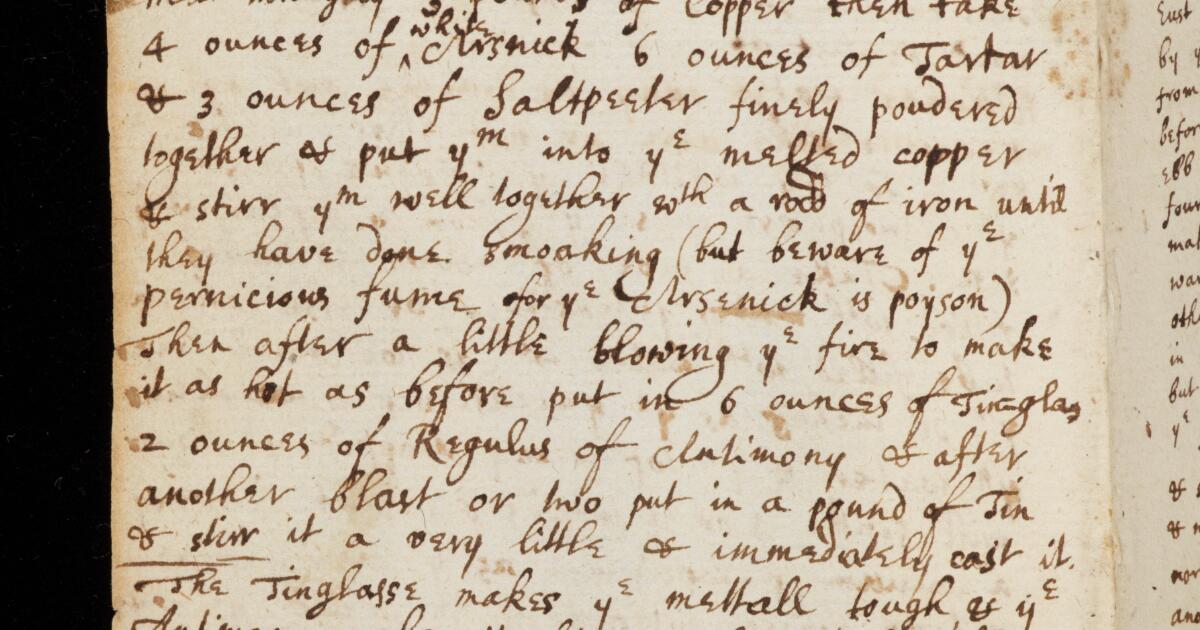 of Copper then take
4 ounces of ^white Arsnick 6 ounces of Tartar
& 3 ounces of Saltpeeter finely poudered
together & put yᵐ into yᵉ melted copper
& stirr yᵐ well together wᵗʰ a rodd of iron untill
they have done smoaking (but beware of yᵉ
pernicious fume for yᵉ Arsenick is poyson)
Then after a little blowing yᵉ fire to make
it as hot as before put in 6 ounces of Tinglas
2 ounces of Regulus of Antimony & after
another blast or two put in a pound of Tin
& stirr it a very little & immediately cast it.
The Tinglasse makes yᵉ mettall tough & yᵉ
by
from
in
but
yᵉ
&
&